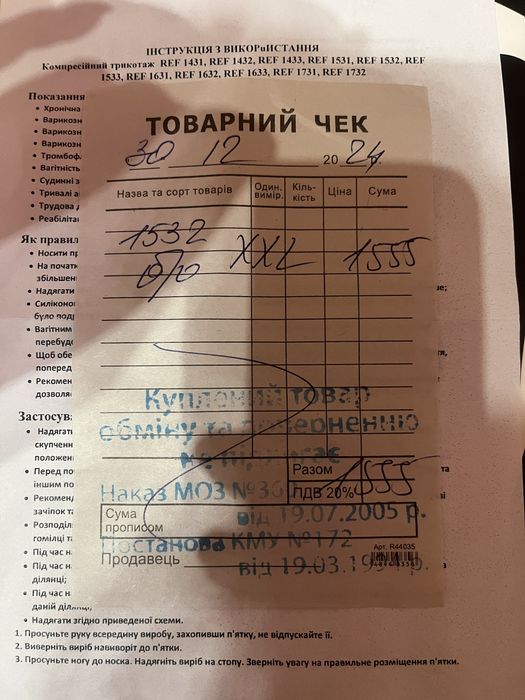 ІНСТРУКЦІЯ З ВИКОРиИСТАННЯ
Компресійний трикотаж REF 1431, REF 1432, REF 1433, REF 1531, REF 1532, REF
1533, REF 1631, REF 1632, REF 1633, REF 1731, REF 1732
Показання
• Хронічна
• Варикозн
• Варикозн
• Варикозн
• Тромбоф
• Вагітність
• Судинні з
• Тривалі а
• Трудова д
• Реабіліта
Як правил
• Носити пр
• На початк
збільшен
• Надягати
• Силіконо
було под
• Вагітним
перебуд
• Щоб обе
поперед
• Рекомен
дозволя
Застосув
• Надягат
скупченн
положен
• Перед по
іншим по
• Рекоменд
зачіпок т
• Розподіл
гомілці т
• Під час н
• Під час н
ділянці;
• Під час н
даній діл
• Надягати згідно приведеної схеми.
1. Просуньте руку всередину виробу, захопивши п'ятку, не відпускайте її.
2. Виверніть виріб навиворіт до п'ятки.
3. Просуньте ногу до носка. Надягніть виріб на стопу. Зверніть увагу на правильне розміщення п'ятки.
ТОВАРНИЙ ЧЕК
30 12 20 24
Назва та сорт товарів Один. вимір. Кіль-кість Ціна Сума
1532 XXL 1555
Куплений товар
обміну та поверненню
не підлягає
Разом 1555
Наказ МОЗ №36
ПДВ 20%
Сума
прописом
від 19.07.2005 р.
Постанова КМУ №172
Арт. R44035
Продавець
від 19.03.1994 р.